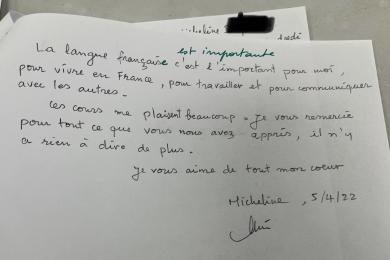 Micheline
La langue française est importante c'est l'important pour moi,
pour vivre en France, pour travailler et pour communiquer
avec les autres.
Ces cours me plaisent beaucoup. Je vous remercie
pour tout ce que vous nous avez appris, il n'y
a rien à dire de plus.
Je vous aime de tout mon coeur
Micheline, 5/4/22